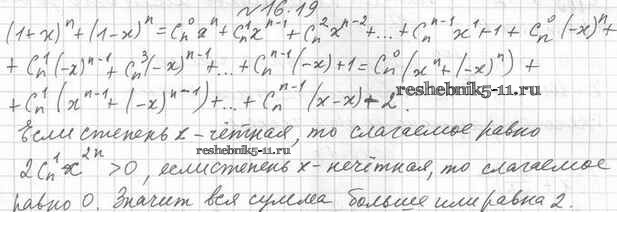 №16.19
(1+x)ⁿ+(1-x)ⁿ = C⁰ₙxⁿ + C¹ₙxⁿ⁻¹ + C²ₙxⁿ⁻² + ... + Cₙⁿ⁻¹x¹+1 + C⁰ₙ(-x)ⁿ+
+ C¹ₙ(-x)ⁿ⁻¹ + C³ₙ(-x)ⁿ⁻¹ + ... + Cₙⁿ⁻¹(-x)+1 = C⁰ₙ(xⁿ+(-x)ⁿ) +
+ C¹ₙ(xⁿ⁻¹+(-x)ⁿ⁻¹) + ... + Cₙⁿ⁻¹(x-x)+2.
reshebnik5-11.ru
Если степень x - чётная, то слагаемое равно
reshebnik5-11.ru
2C¹ₙx²ⁿ > 0, если степень x - нечётная, то слагаемое
равно 0. Значит вся сумма больше или равна 2.